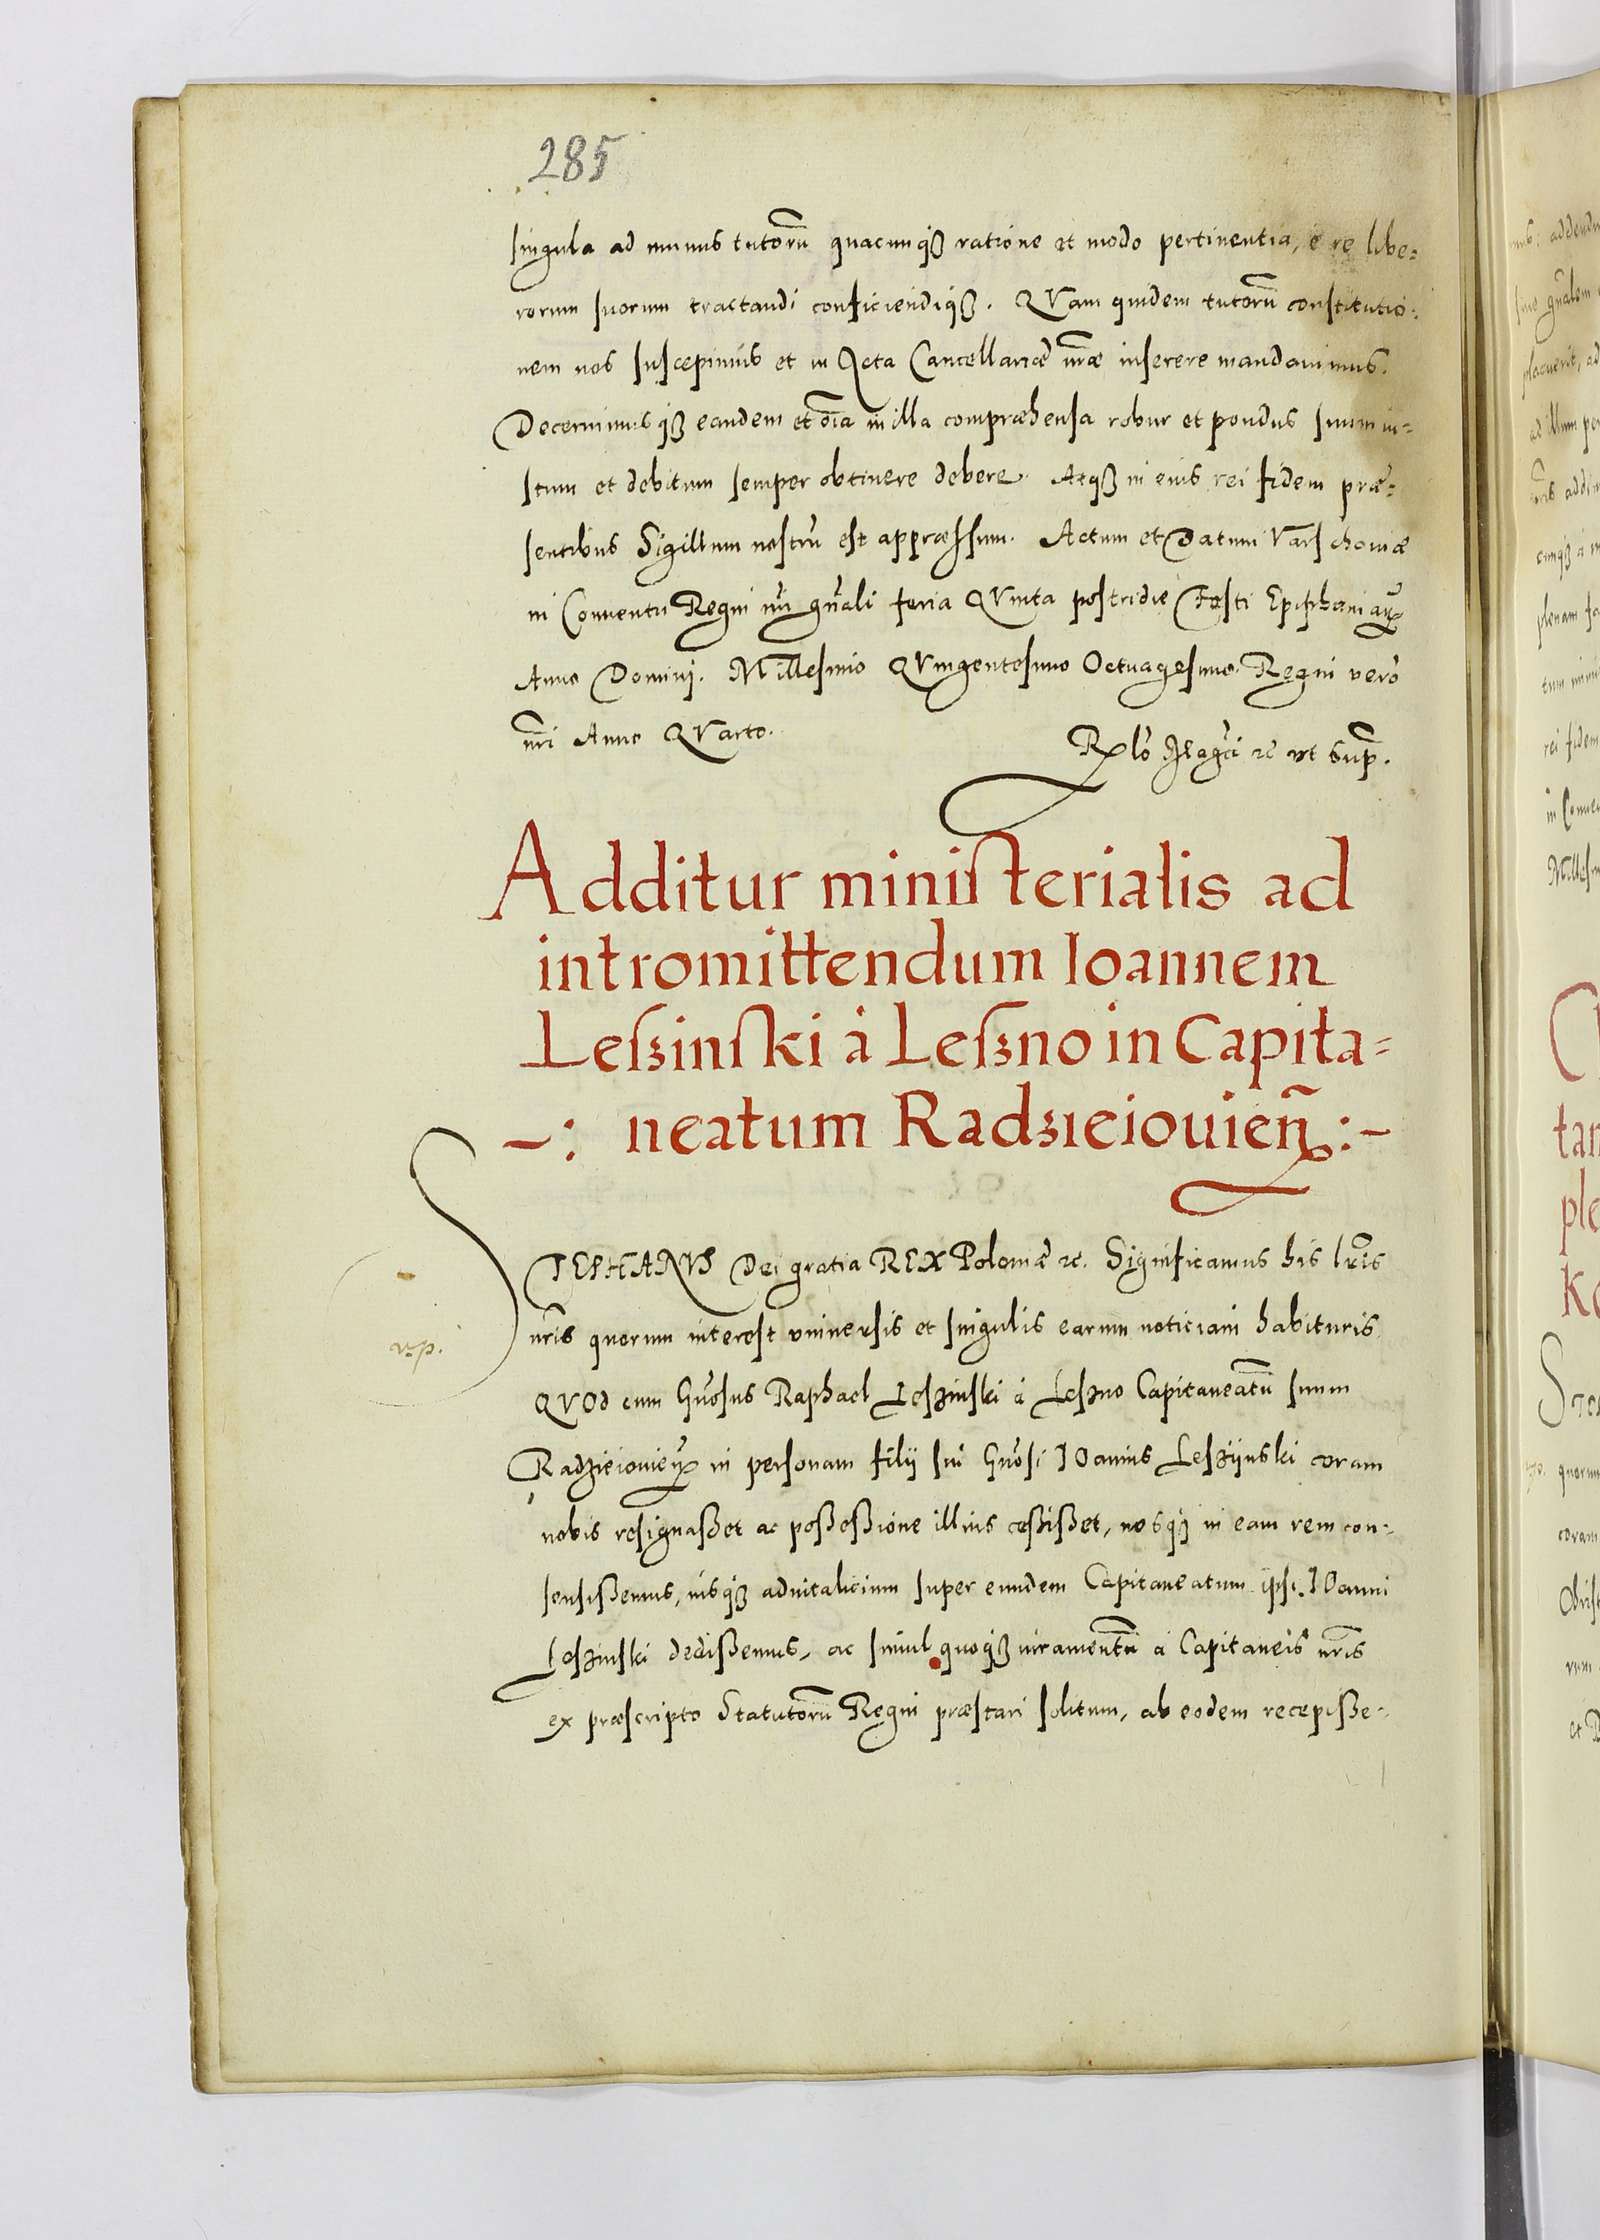 285
singula ad munus tutorũ quacunqꝫ ratione et modo pertinentia, e re libe=
rorum suorum tractandi conficiendiqꝫ. QVam quidem tutorũ constitutio=
nem nos suscepimus et in Acta Cancellariæ nr̃æ inserere mandauimus.
Decernimusqꝫ eandem et oĩa in illa compræhensa robur et pondus suum iu=
stum et debitum semper obtinere debere. Atqꝫ in eius rei fidem præ=
sentibus Sigillum nostrũ est appræssum. Actum et Datum Varschouiæ
in Conuentu Regni nr̃i gñali feria QVinta postridie Festi Epiphaniarꝝ
Anno Domini. Millesimo QVingentesimo Octuagesimo Regni vero
nr̃i Anno QVarto.
ut supr̃.
Additur ministerialis ad
intromittendum Ioannem
Leszinski à Leszno in Capita=
-: neatum Radzieiouień :-
STEPHANVS Dei gratia REX Poloniæ ꝛc. Significamus his lr̃is
nr̃is quorum interest vniuersis et singulis earum noticiam habituris
QVOd cum Gñosus Raphael Leszinski à Leszno Capitaneatũ suum
Radzieiouień in personam filij sui Gñosi IOannis Leszijnski coram
nobis resignaßet ac poßeßione illius ceßißet, nosqꝫ in eam rem con=
sensißemus, iusqꝫ aduitalicium super eundem Capitaneatum ipsi IOanni
Leszinski dedißemus, ac simul quoqꝫ iuramentũ à Capitaneis nr̃is
ex præscripto Statutorũ Regni præstari solitum, ab eodem recepiße=